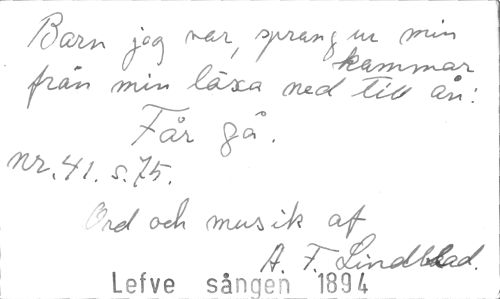 Barn jag var, sprang ur min
kammar
från min läxa ned till ån:
Får gå.
nr. 41. s. 75.
Ord och musik af
A. F. Lindblad.
Lefve sången 1894